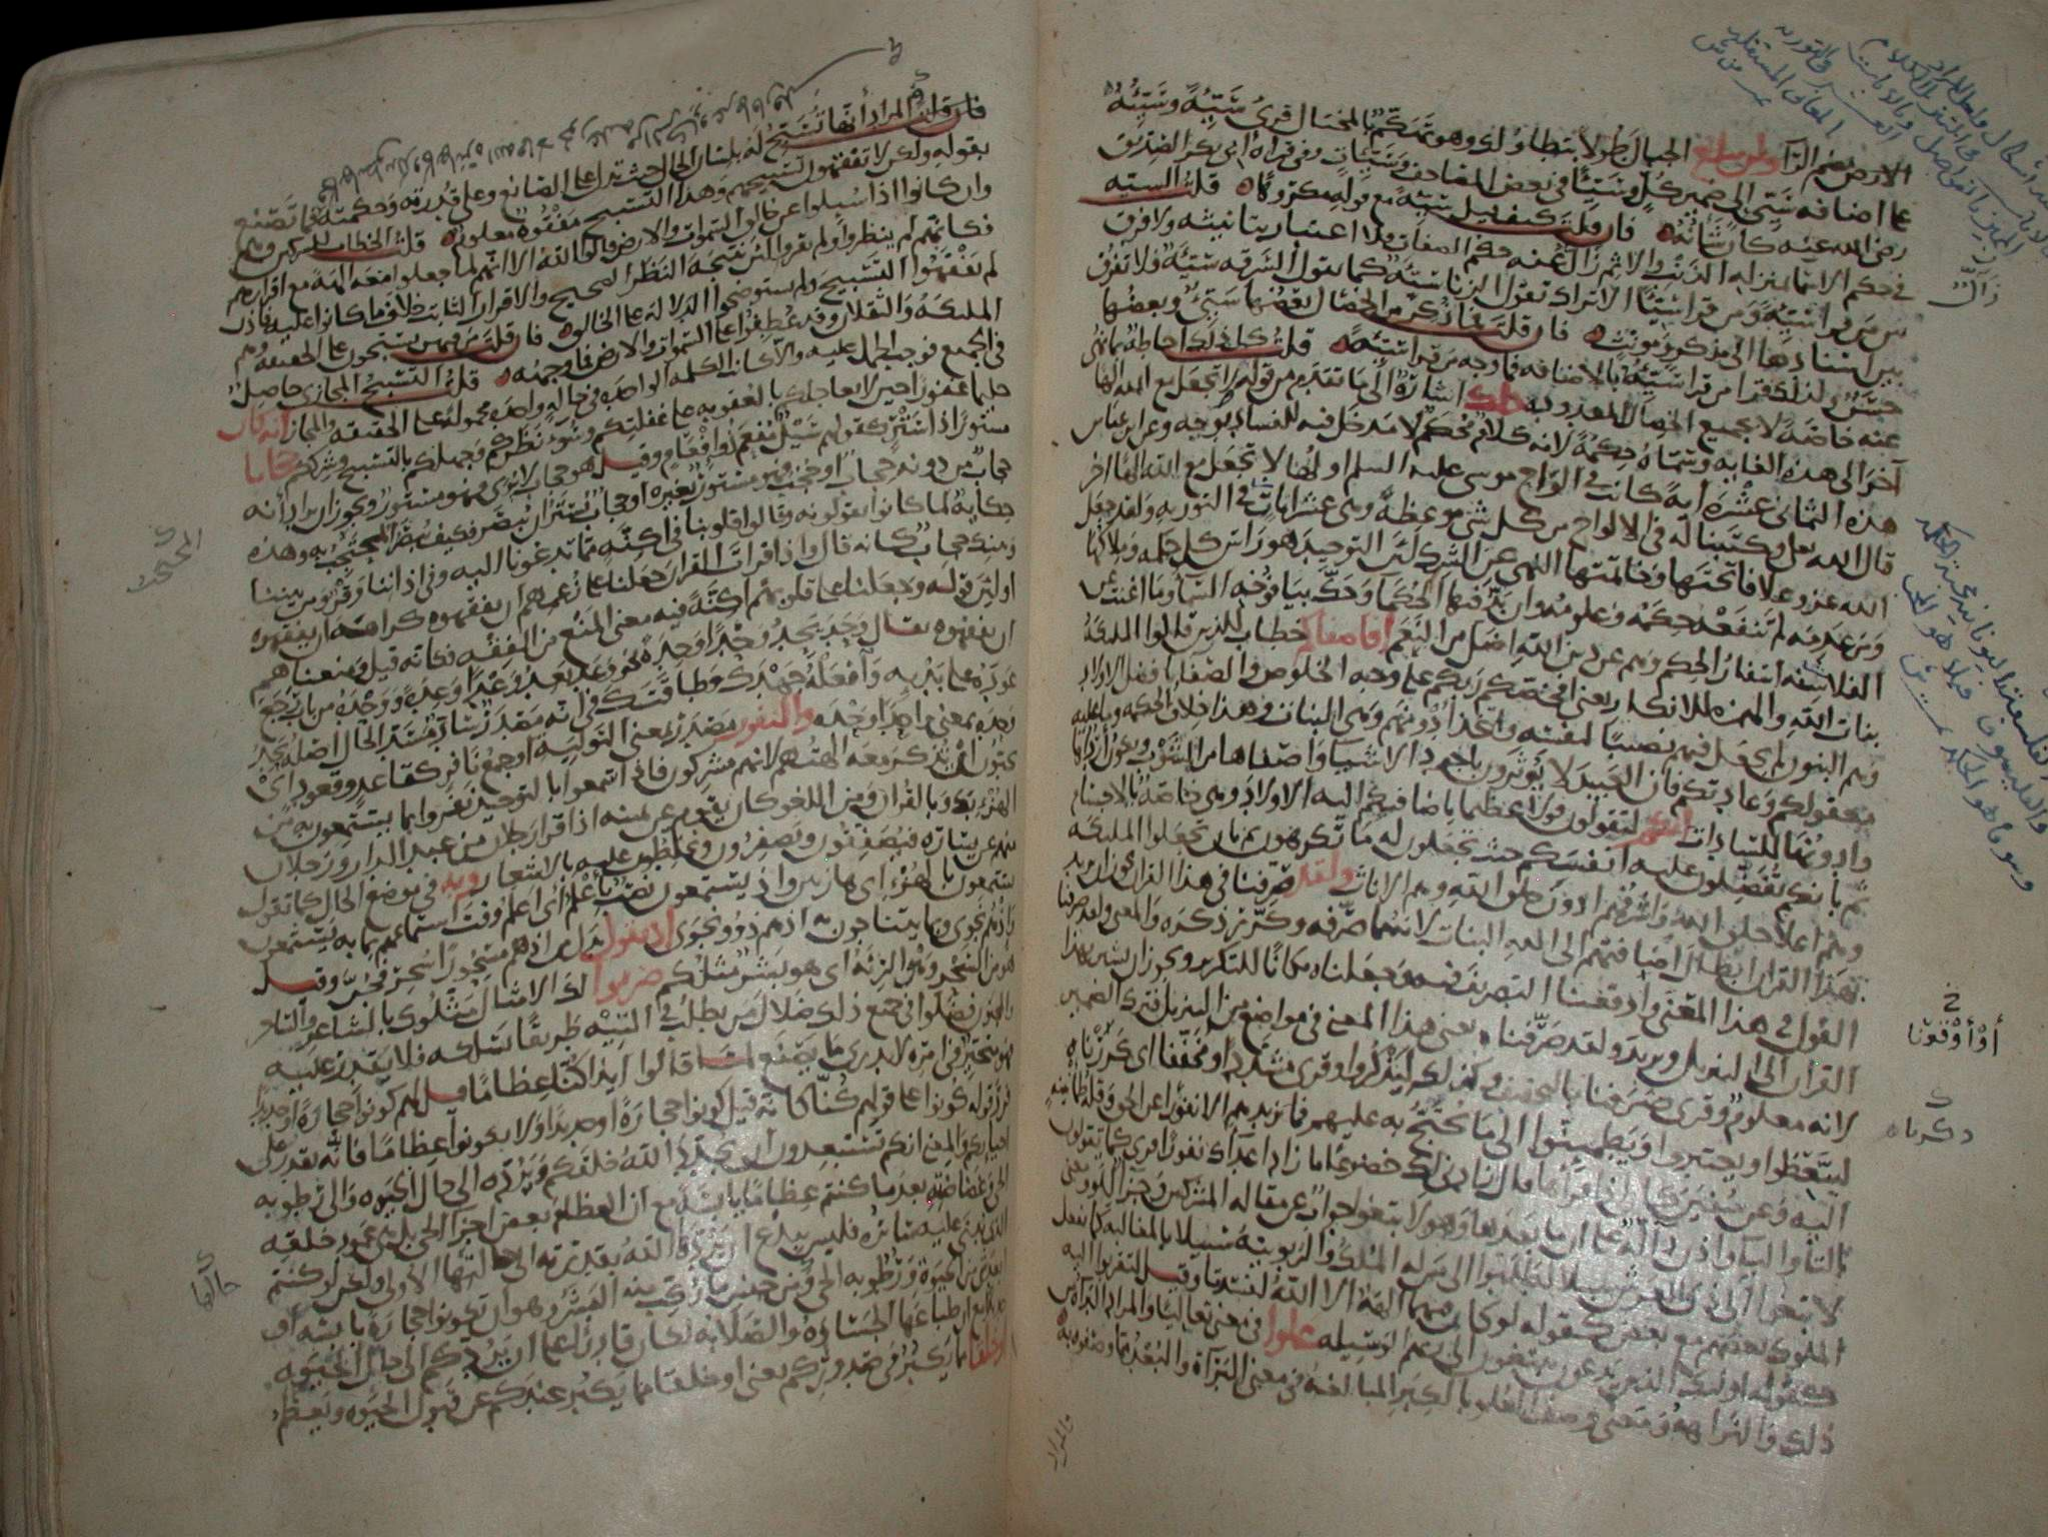 الأرض بضم الراء ولن تبلغ الجبال طولا بتطاولك وهو تهكم بالمختال قرئ سيئة وسيئه
على إضافة سيئ إلى ضمير كل وسيئا في بعض المصاحف وسيئات وفي قراءة أبي بكر الصديق
رضي الله عنه كان شأنه فإن قلت كيف قيل سيئة مع قوله مكروها قلت السيئة
في حكم الأسماء بمنزلة الذنب والإثم زال عنه حكم الصفات فلا اعتبار بتأنيثه ولا فرق
بين من قرأ سيئة ومن قرأ سيئا ألا تراك تقول الزنا سيئة كما تقول السرقة سيئة فلا تفرق
بين إسنادها إلى مذكر ومؤنث فإن قلت فما ذكر من الخصال بعضها سيئ وبعضها
حسن ولذلك قرأ من قرأ سيئه بالإضافة فما وجه من قرأ سيئة قلت كل ذلك إحاطة بما نهي
عنه خاصة لا بجميع الخصال المعدودة ذلك إشارة إلى ما تقدم من قوله لا تجعل مع الله إلها
آخر إلى هذه الغاية وسماه حكمة لأنه كلام محكم لا مدخل فيه للفساد بوجه وعن ابن عباس
هذه الثماني عشرة آية كانت في ألواح موسى عليه السلم أولها لا تجعل مع الله إلها آخر
قال الله تعالى وكتبنا له في الألواح من كل شيء موعظة وهي عشر آيات في التورية ولقد جعل
الله عز وعلا فاتحتها وخاتمتها النهي عن الشرك لأن التوحيد هو رأس كل حكمة وملاكها
ومن عدمه لم تنفعه حكمه وعلومه وإن بذ فيها الحكماء وحك بيافوخه السماء وما أغنت عن
الفلاسفة أسفار الحكم وهم عن دين الله أضل من النعم أفأصفاكم خطاب للذين قالوا الملئكة
بنات الله والهمزة للإنكار يعني أفخصكم ربكم على وجه الخلوص والصفاء بأفضل الأولاد
وهم البنون لم يجعل فيهم نصيبا لنفسه واتخذ أدونهم وهي البنات وهذا خلاف الحكمة وما عليه
معقولكم وعادتكم فإن العبيد لا يؤثرون بأجود الأشياء وأصفاها من الشوب ويكون أردأها
وأدونها للسادات إنكم لتقولون قولا عظيما بإضافتكم إليه الأولاد وهي خاصة بالأجسام
ثم بأنكم تفضلون عليه أنفسكم حيث تجعلون له ما تكرهون ثم بأن تجعلوا الملئكة
وهم أعلى خلق الله وأشرفهم أدون خلق الله وهم الإناث ولقد صرفنا في هذا القرآن يجوز أن يريد
بهذا القرآن إبطال إضافتهم إلى الله البنات لأنه مما صرفه وكرر ذكره والمعنى ولقد صرفنا
القول في هذا المعنى وأوقعنا التصريف فيه وجعلناه مكانا للتكرير ويجوز أن يشير بهذا
القرآن إلى التنزيل ويريد ولقد صرفناه يعني هذا المعنى في مواضع من التنزيل فترك الضمير
لأنه معلوم وقرئ صرفنا بالتخفيف وكذلك ليذكروا وقرئ مشددا ومخففا أي كررناه
ليتعظوا ويعتبروا ويطمئنوا إلى ما يحتج به عليهم فما يزيدهم إلا نفورا عن الحق وقلة طمأنينة
إليه وعن سفيان كان إذا قرأها قال زادني لك خضوعا ما زاد أعداءك نفورا قرئ كما تقولون
بالتاء والياء وإذن دالة على أن ما بعدها وهو لابتغوا جواب عن مقالة المشركين وجزاء للو ومعنى
لابتغوا إلى ذي العرش سبيلا لطلبوا إلى من له الملك والربوبية سبيلا بالمغالبة كما يفعل
الملوك بعضهم مع بعض كقوله لو كان فيهما آلهة إلا الله لفسدتا وقيل لتقربوا إليه
كقوله أولئك الذين يدعون يبتغون إلى ربهم الوسيلة علوا في معنى تعاليا والمراد البراءة عن
ذلك والنزاهة ومعنى وصف العلو بالكبر المبالغة في معنى البراءة والبعد مما وصفوه به
أو أوقعنا
ذكرناه
والمراد
فإن قلت المراد أنها تسبح له بلسان الحال حيث تدل على الصانع وعلى قدرته وحكمته فما تصنع
بقوله ولكن لا تفقهون تسبيحهم وهذا التسبيح مفقوه معلوم قلت الخطاب للمشركين وهم
وإن كانوا إذا سئلوا عن خالق السموات والأرض قالوا الله إلا أنهم لما جعلوا معه آلهة مع إقرارهم
فكأنهم لم ينظروا ولم يقروا لأن نتيجة النظر الصحيح والإقرار الثابت خلاف ما كانوا عليه فإذن
لم يفقهوا التسبيح ولم يستوضحوا الدلالة على الخالق فإن قلت من فيهن يسبحون على الحقيقة وهم
الملئكة والثقلان وقد عطفوا على السموات والأرض فما وجهه قلت التسبيح المجازي حاصل
في الجميع فوجب الحمل عليه وإلا كانت الكلمة الواحدة في حالة واحدة محمولة على الحقيقة والمجاز إنه كان
حليما غفورا حين لا يعاجلكم بالعقوبة على غفلتكم وسوء نظركم وجهلكم بالتسبيح وشرككم حجابا
مستورا ذا ستر كقولهم سيل مفعم ذو إفعام وقيل هو حجاب لا يرى فهو مستور ويجوز أن يراد أنه
حجاب من دونه حجاب أو حجب فهو مستور بغيره أو حجاب يستر أن يبصر فكيف يبصر المحتجب به وهذه
حكاية لما كانوا يقولونه وقالوا قلوبنا في أكنة مما تدعونا إليه وفي آذاننا وقر ومن بيننا
وبينك حجاب كأنه قال وإذا قرأت القرآن جعلنا على زعمهم أن يفقهوه كراهة أن يفقهوه
أو لأن قوله وجعلنا على قلوبهم أكنة فيه معنى المنع من الفقه فكأنه قيل ومنعناهم
أن يفقهوه يقال وحد يحد وحدا وحدة نحو وعد يعد وعدا وعدة ووحده من باب رجع
عوده على بدئه وافعله جهدك وطاقتك في أنه مصدر ساد مسد الحال أصله يحد
وحده بمعنى واحدا وحده والنفور مصدر بمعنى التولية أو جمع نافر كقاعد وقعود أي
يحبون أن تذكر معه آلهتهم لأنهم مشركون فإذا سمعوا بالتوحيد نفروا بما يستمعون به من
الهزء بك وبالقرآن ومن اللغو كان يقوم عن يمينه إذا قرأ رجلان من عبد الدار ورجلان
منهم عن يساره فيصفقون ويصفرون ويخلطون عليه بالأشعار وبه في موضع الحال كما تقول
يستمعون بالهزء أي هازئين وإذ يستمعون نصب بأعلم أي أعلم وقت استماعهم بما به يستمعون
وإذ هم نجوى وبما يتناجون به إذ هم ذوو نجوى إذ يقول بدل من إذ هم مسحورا سحر فجن وقيل
هو من السحر وهو الرئة أي هو بشر مثلكم ضربوا لك الأمثال مثلوك بالشاعر والساحر
والمجنون فضلوا في جميع ذلك ضلال من يطلب في التيه طريقا يسلكه فلا يقدر عليه
فهو متحير في أمره لا يدري ما يصنع لما قالوا أئذا كنا عظاما قيل لهم كونوا حجارة أو حديدا
فرد قوله كونوا على قولهم كنا كأنه قيل كونوا حجارة أو حديدا ولا تكونوا عظاما فإنه يقدر على
إحيائكم والمعنى أنكم تستبعدون أن يجدد الله خلقكم ويرده إلى حال الحيوة وإلى رطوبة
الحي وغضاضته بعد ما كنتم عظاما يابسة مع أن العظام بعض أجزاء الحي بل هي عمود خلقه
الذي يبنى عليه سائره فليس ببدع أن يردها الله بقدرته إلى حالتها الأولى ولكن لو كنتم
أبعد شيء من الحيوة ورطوبة الحي ومن جنس ما ركب منه البشر وهو أن تكونوا حجارة يابسة أو
حديدا مع أن طباعها الجسارة والصلابة لكان قادرا على أن يردكم إلى حال الحيوة
أو خلقا مما يكبر في صدوركم يعني أو خلقا مما يكبر عندكم عن قبول الحيوة ويعظم
المحتجب
حالها